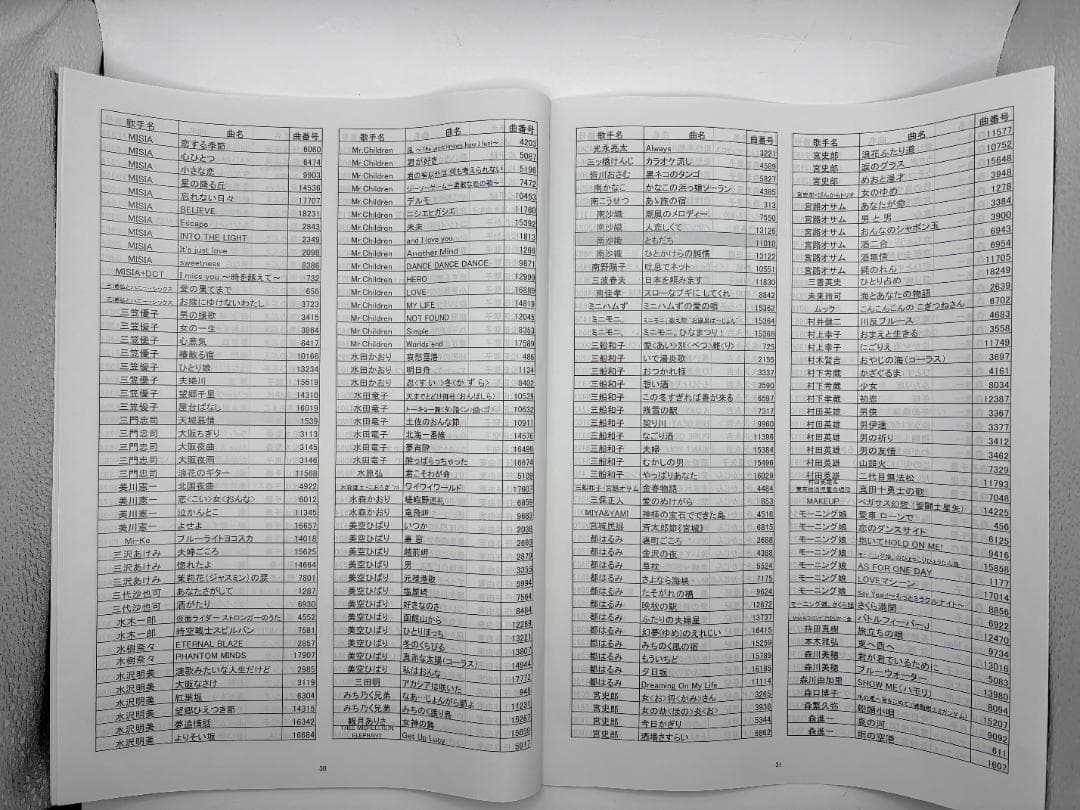 歌手名 曲名 曲番号
MISIA 恋する季節 6060
MISIA 心ひとつ 6474
MISIA 小さな恋 9903
MISIA 星の降る丘 14536
MISIA 忘れない日々 17707
MISIA BELIEVE 18231
MISIA Escape 2843
MISIA INTO THE LIGHT 2349
MISIA It's just love 2098
MISIA sweetness 8386
MISIA+DCT I miss you ～時を越えて～ 732
三浦弘とハニーシックス 愛の果てまで 656
三浦弘とハニーシックス お嫁にゆけないわたし 3723
三笠優子 男の援歌 3415
三笠優子 女の一生 3864
三笠優子 心意気 8417
三笠優子 椿散る宿 10166
三笠優子 ひとり娘 13234
三笠優子 夫婦川 15619
三笠優子 望郷千里 14310
三笠優子 屋台ばなし 16019
三門忠司 天城慕情 1539
三門忠司 大阪ちぎり 3113
三門忠司 大阪夜曲 3145
三門忠司 大阪夜雨 3146
三門忠司 浪花のギター 11568
美川憲一 北国夜曲 4922
美川憲一 恋<こい>女<おんな> 6012
美川憲一 泣かんとこ 11345
美川憲一 よせよ 16657
Mi-Ke ブルーライトヨコスカ 14018
三沢あけみ 夫婦ごころ 15625
三沢あけみ 惚れたよ 14664
三沢あけみ 茉莉花(ジャスミン)の涙 7801
三代沙也可 あなたさがして 1287
三代沙也可 酒がたり 6930
水木一郎 仮面ライダーストロンガーのうた 4552
水木一郎 時空戦士スピルバン 7581
水樹奈々 ETERNAL BLAZE 2857
水樹奈々 PHANTOM MINDS 17907
水沢明美 演歌みたいな人生だけど 2985
水沢明美 大阪なさけ 3119
水沢明美 紅葉坂 6304
水沢明美 望郷ひえつき節 14315
水沢明美 夢追情話 16342
水沢明美 よりそい坂 16684
30
歌手名 曲名 曲番号
Mr.Children 4203
Mr.Children 君が好き 5087
Mr.Children 君の事以外は何も考えられない 5196
Mr.Children シーソーゲーム～勇敢な恋の歌～ 7472
Mr.Children デルモ 10453
Mr.Children ニシエヒガシエ 11760
Mr.Children 未来 15392
Mr.Children and I love you 1813
Mr.Children Another Mind 1260
Mr.Children DANCE DANCE DANCE 9871
Mr.Children HERO 12990
Mr.Children LOVE 16889
Mr.Children MY LIFE 14819
Mr.Children NOT FOUND 12045
Mr.Children Simple 8353
Mr.Children Worlds end 17589
水田かおり 486
水田かおり 明日舟 1134
水田かおり 忍<すい>冬<かずら> 8402
水田竜子 天までとどけ御柱(おんばしら) 10539
水田竜子 10632
水田竜子 土佐のおんな節 10911
水田竜子 北海一番船 14576
水田竜子 夢宵酔 16499
水田竜子 酔っぱらっちゃった 16674
水原弘 君こそわが命 5109
ワイワイワールド 17607
水森かおり 堤焔野巡礼 6959
水森かおり 竜飛岬 9683
美空ひばり いつか 2038
美空ひばり 裏窓 2693
美空ひばり 越前岬 2870
美空ひばり 男 3355
美空ひばり 元禄港歌 5994
美空ひばり 塩屋崎 7564
美空ひばり 好きなのさ 8484
美空ひばり 函館山から 12289
美空ひばり ひとりぼっち 13221
美空ひばり 冬のくちびる 13807
美空ひばり 真赤な太陽(コーラス) 14944
美空ひばり 私はおんな 17772
三田明 アカシアは咲いた 945
みちのく兄弟 なぁ…じょんがら節よ 11231
みちのく兄弟 みちのく渡り鳥 15267
観月ありさ 女神の舞 15656
THEE MICHELLE GUN ELEPHANT Get Up Lucy 5917
歌手名 曲名 曲番号
光永亮太 Always 3221
三ッ橋けんじ カラオケ流し 4589
皆川おさむ 黒ネコのタンゴ 5827
南かなこ かなこの浜っ娘ソーラン 4385
南こうせつ あゝ旅の宿 313
南沙織 潮風のメロディー 7550
南沙織 人恋しくて 13126
南沙織 ともだち 11010
南沙織 ひとかけらの純情 13122
南野陽子 吐息でネット 10551
三波春夫 日本を頼みます 11830
南佳孝 スローなブギにしてくれ 8842
ミニハムず ミニハムずの愛の唄 15362
ミニモニ。 15364
ミニモニ。 ミニモニ。ひなまつり! 15368
三船和子 愛<あい>別<べつ>離<り> 725
三船和子 いで湯炎歌 2155
三船和子 おつかれ様 3337
三船和子 想い酒 3590
三船和子 この冬すぎれば春が来る 6597
三船和子 残雪の駅 7317
三船和子 契り川 9960
三船和子 なごり酒 11396
三船和子 夫婦 15384
三船和子 むかしの男 15496
三船和子 やっぱりあなた 16029
三船和子・宮路オサム 金春物語 4484
三保正人 愛のぬけがら 653
MIYA&YAMI 神様の宝石でできた島 4516
宮城民謡 斉太郎節《宮城》 6815
都はるみ 裏町ごころ 2668
都はるみ 金沢の夜 4388
都はるみ 草枕 5524
都はるみ さよなら海峡 7175
都はるみ たそがれの橋 9624
都はるみ 晩秋の駅 12872
都はるみ ふたりの夫婦星 13737
都はるみ 幻夢<ゆめ>のえれじい 16415
都はるみ みちのく風の宿 15259
都はるみ もういちど 15789
都はるみ 夕日坂 16189
都はるみ Dreaming On My Life 11114
宮史郎 女<お>将<かみ>さん 3265
宮史郎 女の劫<ほの>炎<お> 3936
宮史郎 今日かぎり 5344
宮史郎 酒場さすらい 6862
31
歌手名 曲名 曲番号
宮史郎 浪花ふたり道 11577
宮史郎 涙のグラス 10752
宮史郎 めおと漫才 15648
宮史郎・ぴんからトリオ 女のゆめ 3948
宮路オサム あなたが命 1278
宮路オサム 男と男 3384
宮路オサム おんなのシャボン玉 3900
宮路オサム 酒二合 6943
宮路オサム 酒無情 6954
宮路オサム 縄のれん 11705
三善英史 ひとり占め 18249
未来玲可 海とあなたの物語 2639
ムック こんこんこんのこぎつねさん 6702
村井健二 川反ブルース 4683
村上幸子 おまえと生きる 3558
村上幸子 にごりえ 11749
村木賢吉 おやじの海(コーラス) 3697
村下孝蔵 かざぐるま 4161
村下孝蔵 少女 8034
村下孝蔵 初恋 12387
村田英雄 男侠 3367
村田英雄 男伊達 3377
村田英雄 男の祈り 3412
村田英雄 男の友情 3462
村田英雄 山頭火 7329
村田英雄 二代目無法松 11793
真田十勇士の歌 7048
MAKEUP ペガサス幻想(聖闘士星矢) 14225
モーニング娘 愛車 ローンで 456
モーニング娘 恋のダンスサイト 6125
モーニング娘 抱いてHOLD ON ME! 9416
モーニング娘 15858
モーニング娘 AS FOR ONE DAY 1177
モーニング娘 LOVEマシーン 17014
モーニング娘 Say Yeah!～もっとミラクルナイト～ 8856
モーニング娘。さくら組 さくら満開 6922
バトルフィーバーJ 12470
持田真樹 旅立ちの唄 9734
本木雅弘 東へ西へ 13016
森川美穂 君が君でいるために 5083
森川美穂 ブルーウォーター 13980
森川由加里 SHOW ME(ハモリ) 8094
森口博子 15207
森繁久弥 船頭小唄 9092
森進一 哀の河 611
森進一 雨の空港 1607